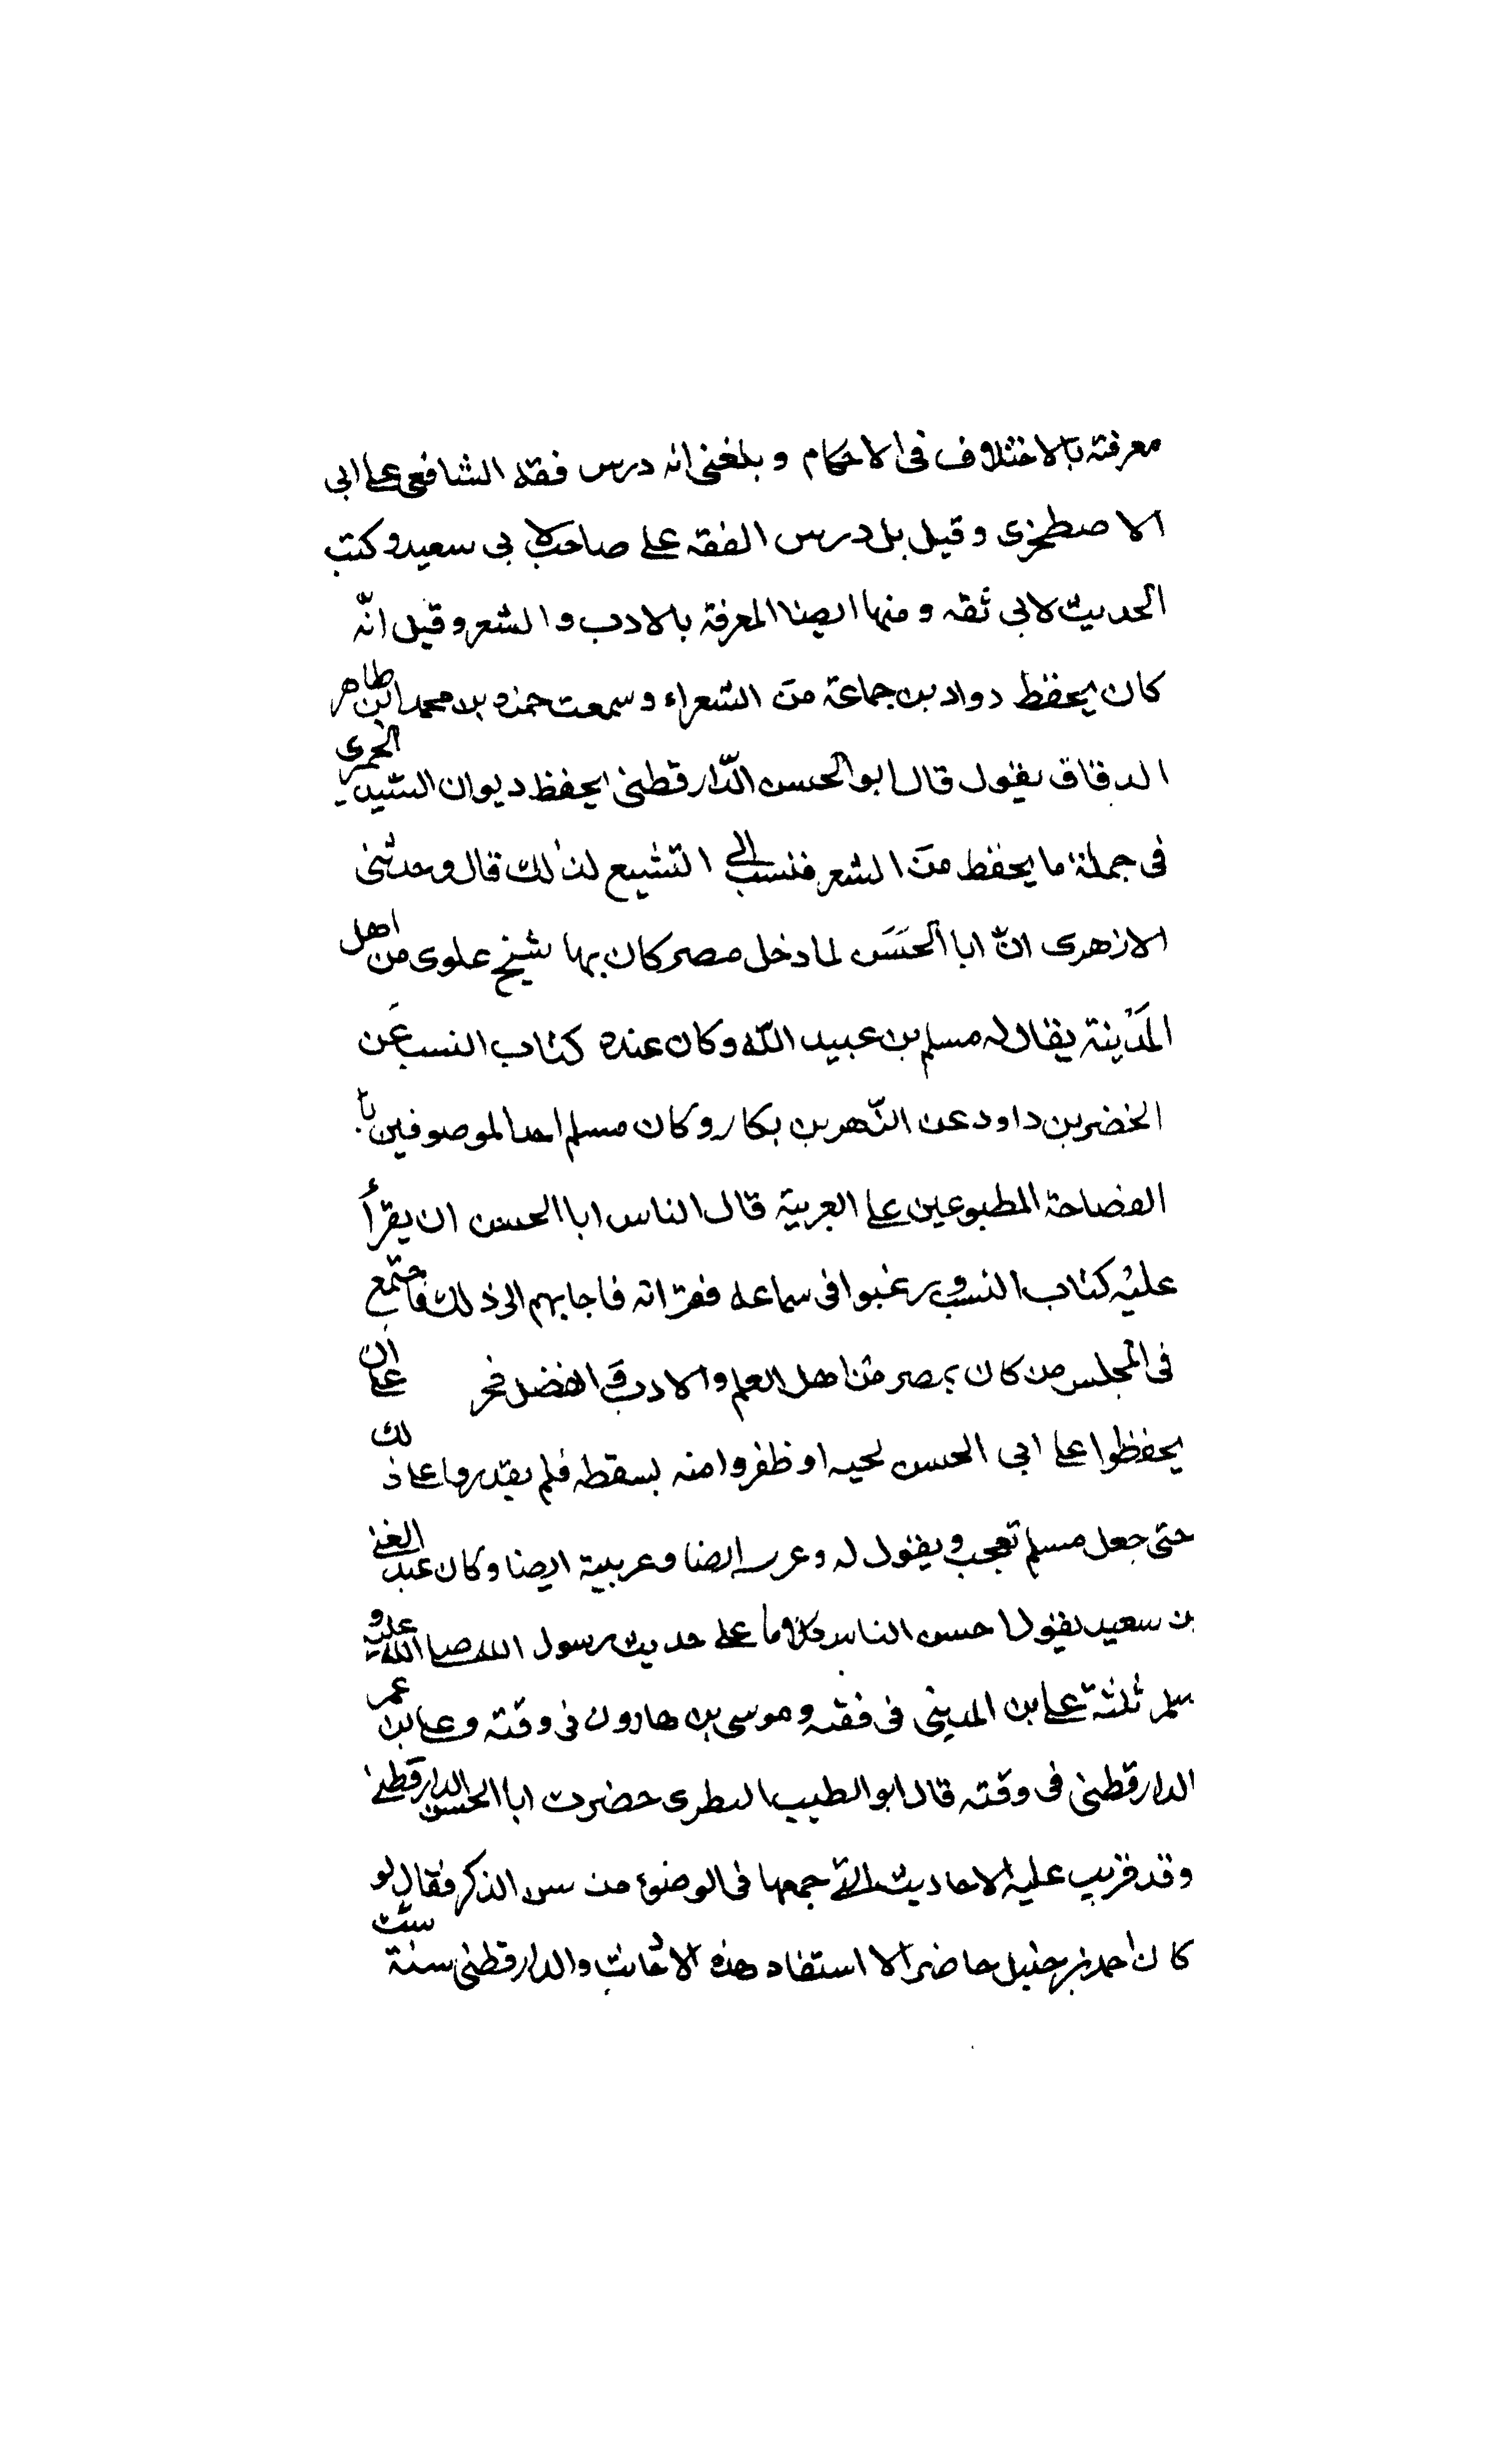 معرفته بالاختلاف فى الاحكام و بلغنى انه درس فقه الشافعى على ابى
الاصطخرى و قيل بل درس الفقه على صاحب لا بى سعيد و كتب
الحديث لابى ثقه و منها ايضا المعرفة بالادب و الشعر و قيل انّه
كان يحفظ دواد بن جماعة من الشعراء و سمعت حمزه بن محمد ابن طاهر
الدقاق يقول قال ابو الحسن الدّارقطنى يحفظ ديوان السيد الحميرى
فى جملة ما يحفظ من الشعر فنسب الى التشيع لذلك قال و حدثنى
الازهرى انّ ابا الحسَن لما دخل مصر كان بها شيخ علوى من اهل
المَدْينة يقال له مسلم بن عبيد اللّه و كان عنده كتاب النسب عَن
الخضر بن داود عن الزّهر بن بكار و كان مسلم احد الموصوفين با
الفضاحة المطبوعين على العربية قال الناس ابا الحسن ان يقرأ
عليْه كتاب النسب و رغبوا فى سماعه فقرّاته فاجابهم الى ذلك فاجتمع
فى المجلس من كان بمصر من اهل العلم و الادب و الفضل فحر على ان
يحفظوا على ابى الحسن لحيه او ظفروا منه بسقطه فلم يقدروا على ذلك
حتى جعل مسلم تعجب و يقول له و عرب ايضا و عربية ايضا و كان عبد الغنى
بن سعيد يقول احسن الناس كلاما على حديث رسول الله صلى الله عليه و
سلم ثلثة على بن المدينى فى فقه و موسى بن هارون فى وقته و على بن عمر
الدارقطنى فى وقته قال ابو الطيب الطبرى حضرت ابا الحسن الدارقطنى
و قد قريب عليه الاحاديث التى جمعها فى الوضوء من مس الذكر فقال لو
كان احمد بن حنبل حاضرا لا استفاد هذه الاحاديث و الدارقطنى سنة ست